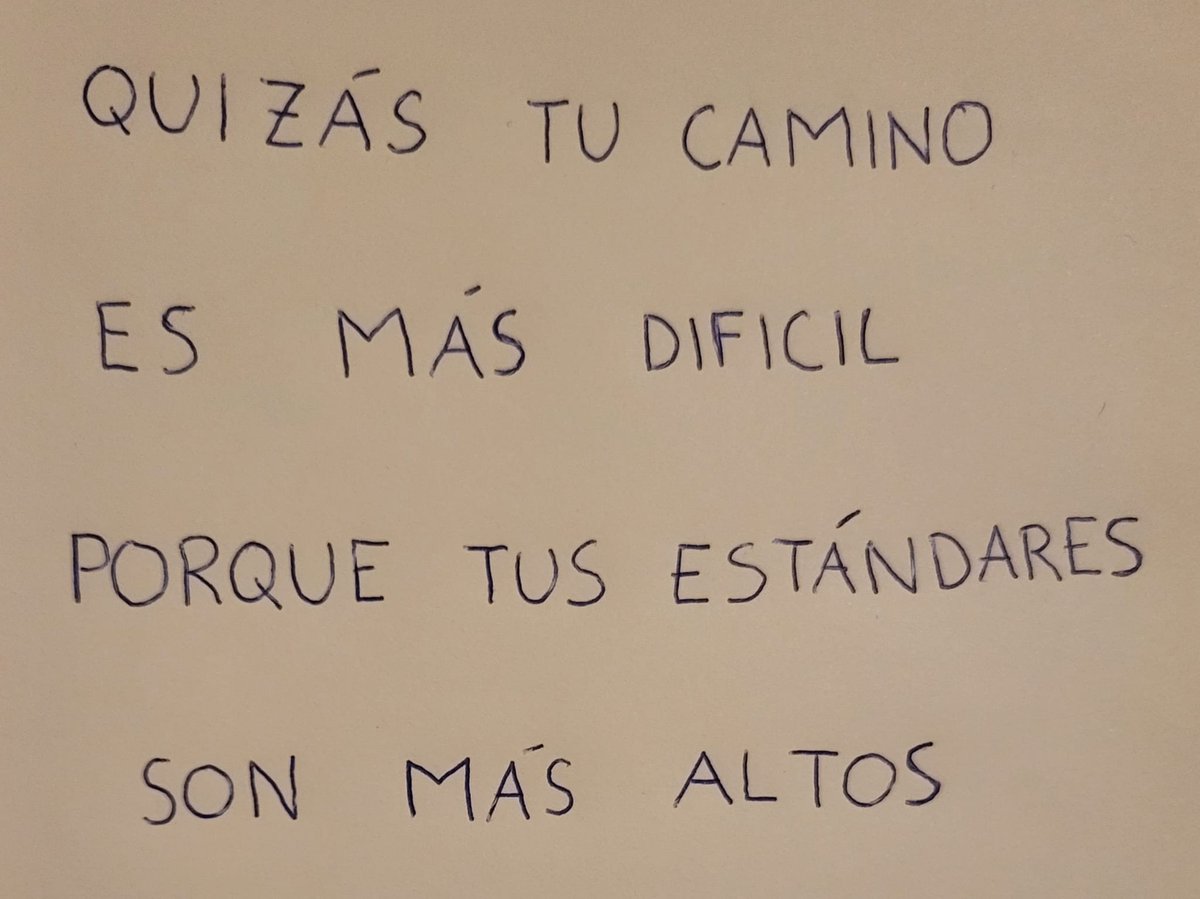 QUIZÁS TU CAMINO
ES MÁS DIFICIL
PORQUE TUS ESTÁNDARES
SON MÁS ALTOS